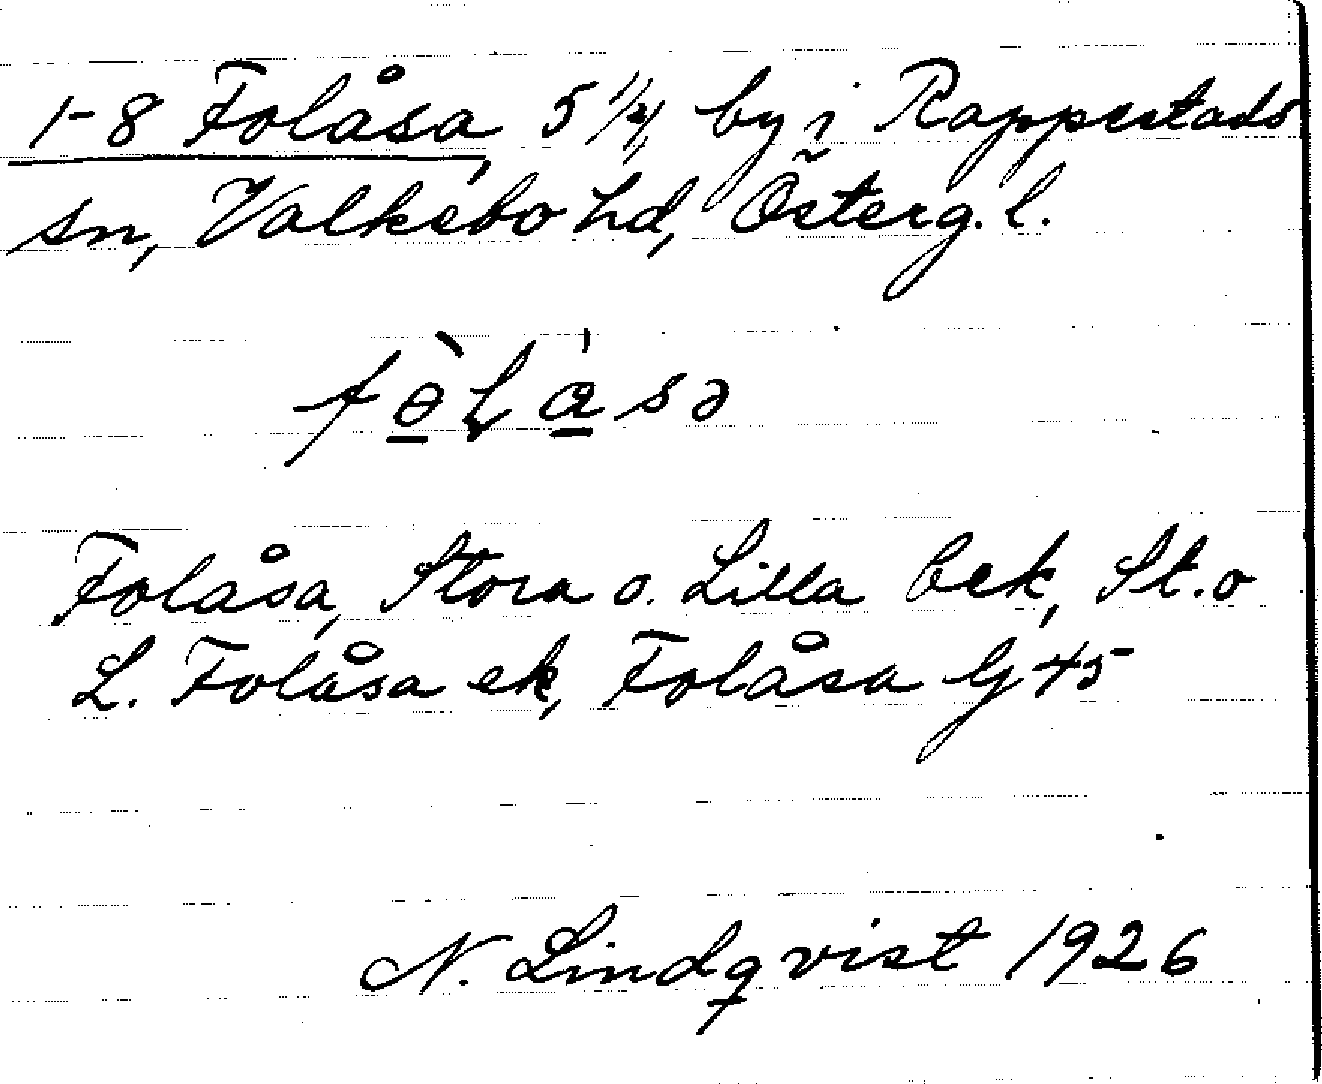 1-8 Folåsa, 5 1/4, by i Rappestads
sn, Valkebo hd, Österg. l.
fə̀ḷa̍sə
Folåsa, Stora o. Lilla bek, St. o
L. Folåsa ek, Folåsa Gj 45
N. Lindqvist 1926